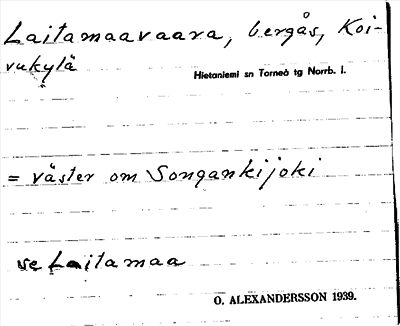 Laitamaavaara, bergås, Koi-
vukylä
Hietaniemi sn Torneå tg Norrb. l.
= väster om Songankijoki
se Laitamaa
O. ALEXANDERSSON 1939.